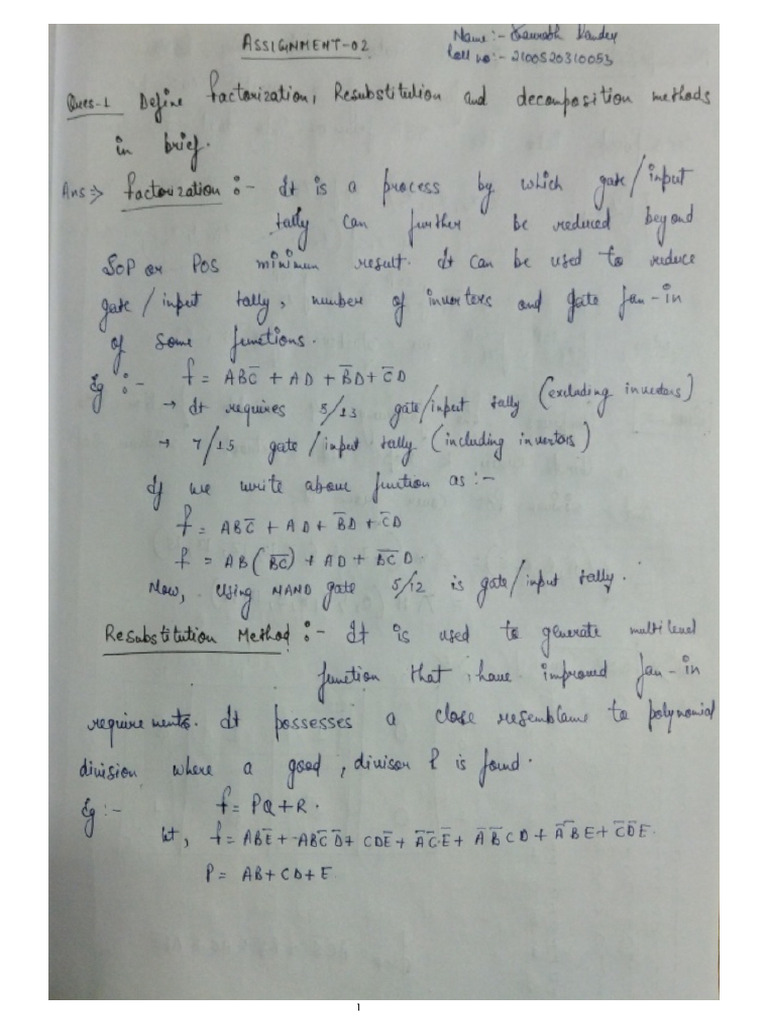 ASSIGNMENT-02
Name:- Saurabh Pandey
Roll no:- 2100520310053
Ques-1 Define factorization, Resubstitution and decomposition methods
in brief.
Ans⇒ factorization :- It is a process by which gate/input
tally can further be reduced beyond
SOP or POS minimun result. It can be used to reduce
gate/input tally, number of inverters and gate fan-in
of some functions.
Eg :- f = ABC̅ + AD + B̅D + C̅D
→ It requires 5/13 gate/input tally (excluding invertors)
→ 7/15 gate/input tally (including invertors)
If we write above function as :-
f = ABC̅ + AD + B̅D + C̅D
f = AB(B̅C̅) + AD + B̅C̅ D.
Now, using NAND gate 5/12 is gate/input tally.
Resubstitution Method :- It is used to generate multilevel
function that, have improved fan-in
requirements. It possesses a close resemblance to polynomial
division where a good, divisor P is found.
Eg :- f = PQ+R.
let, f = ABE̅ + ABC̅D̅ + CDE̅ + A̅C̅E̅ + A̅B̅CD + A̅B̅E + C̅D̅E.
P = AB+CD+E
1